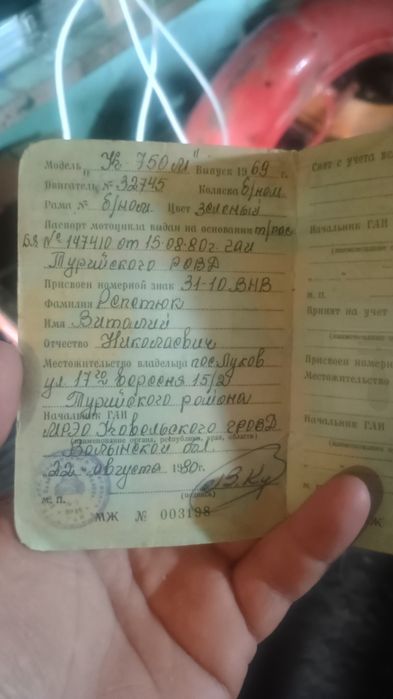 Модель „К-750М" Выпуск 1969 г.
Двигатель № 32745 Коляска б/ном
Рама № б/ном Цвет зеленый
Паспорт мотоцикла выдан на основании
№ 147410 от 15.08.80г. ГАИ
Турийского РОВД
Присвоен номерной знак 31-10 ВНВ
Фамилия Репетюк
Имя Виталий
Отчество Николаевич
Местожительство владельца пос Луков
ул 17го вересня 15/2
Турийского района
Начальник ГАИ
МРЭО Ковельского ГРОВД
(наименование органа, республики, края, области)
Волынской обл.
22 августа 1980г.
(подпись)
м. п.
МЖ № 003198
Снят с учета
Начальник ГАИ
м. п.
Принят на учет
Присвоен номерной
Местожительство
Начальник ГАИ
м. п.